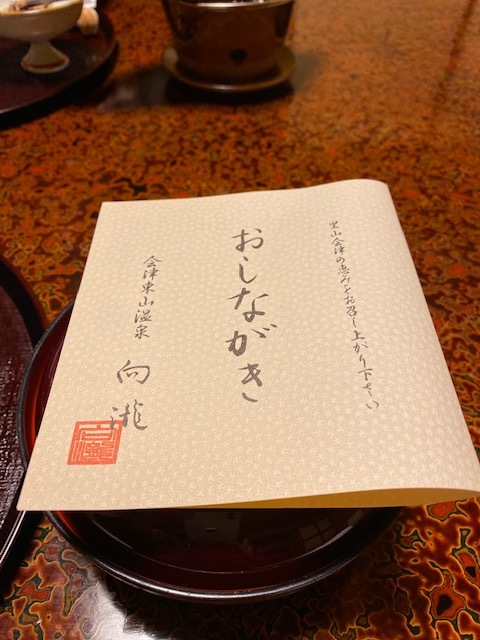 里山会津の恵みをお召し上がり下さい
おしながき
会津東山温泉 向瀧
向瀧